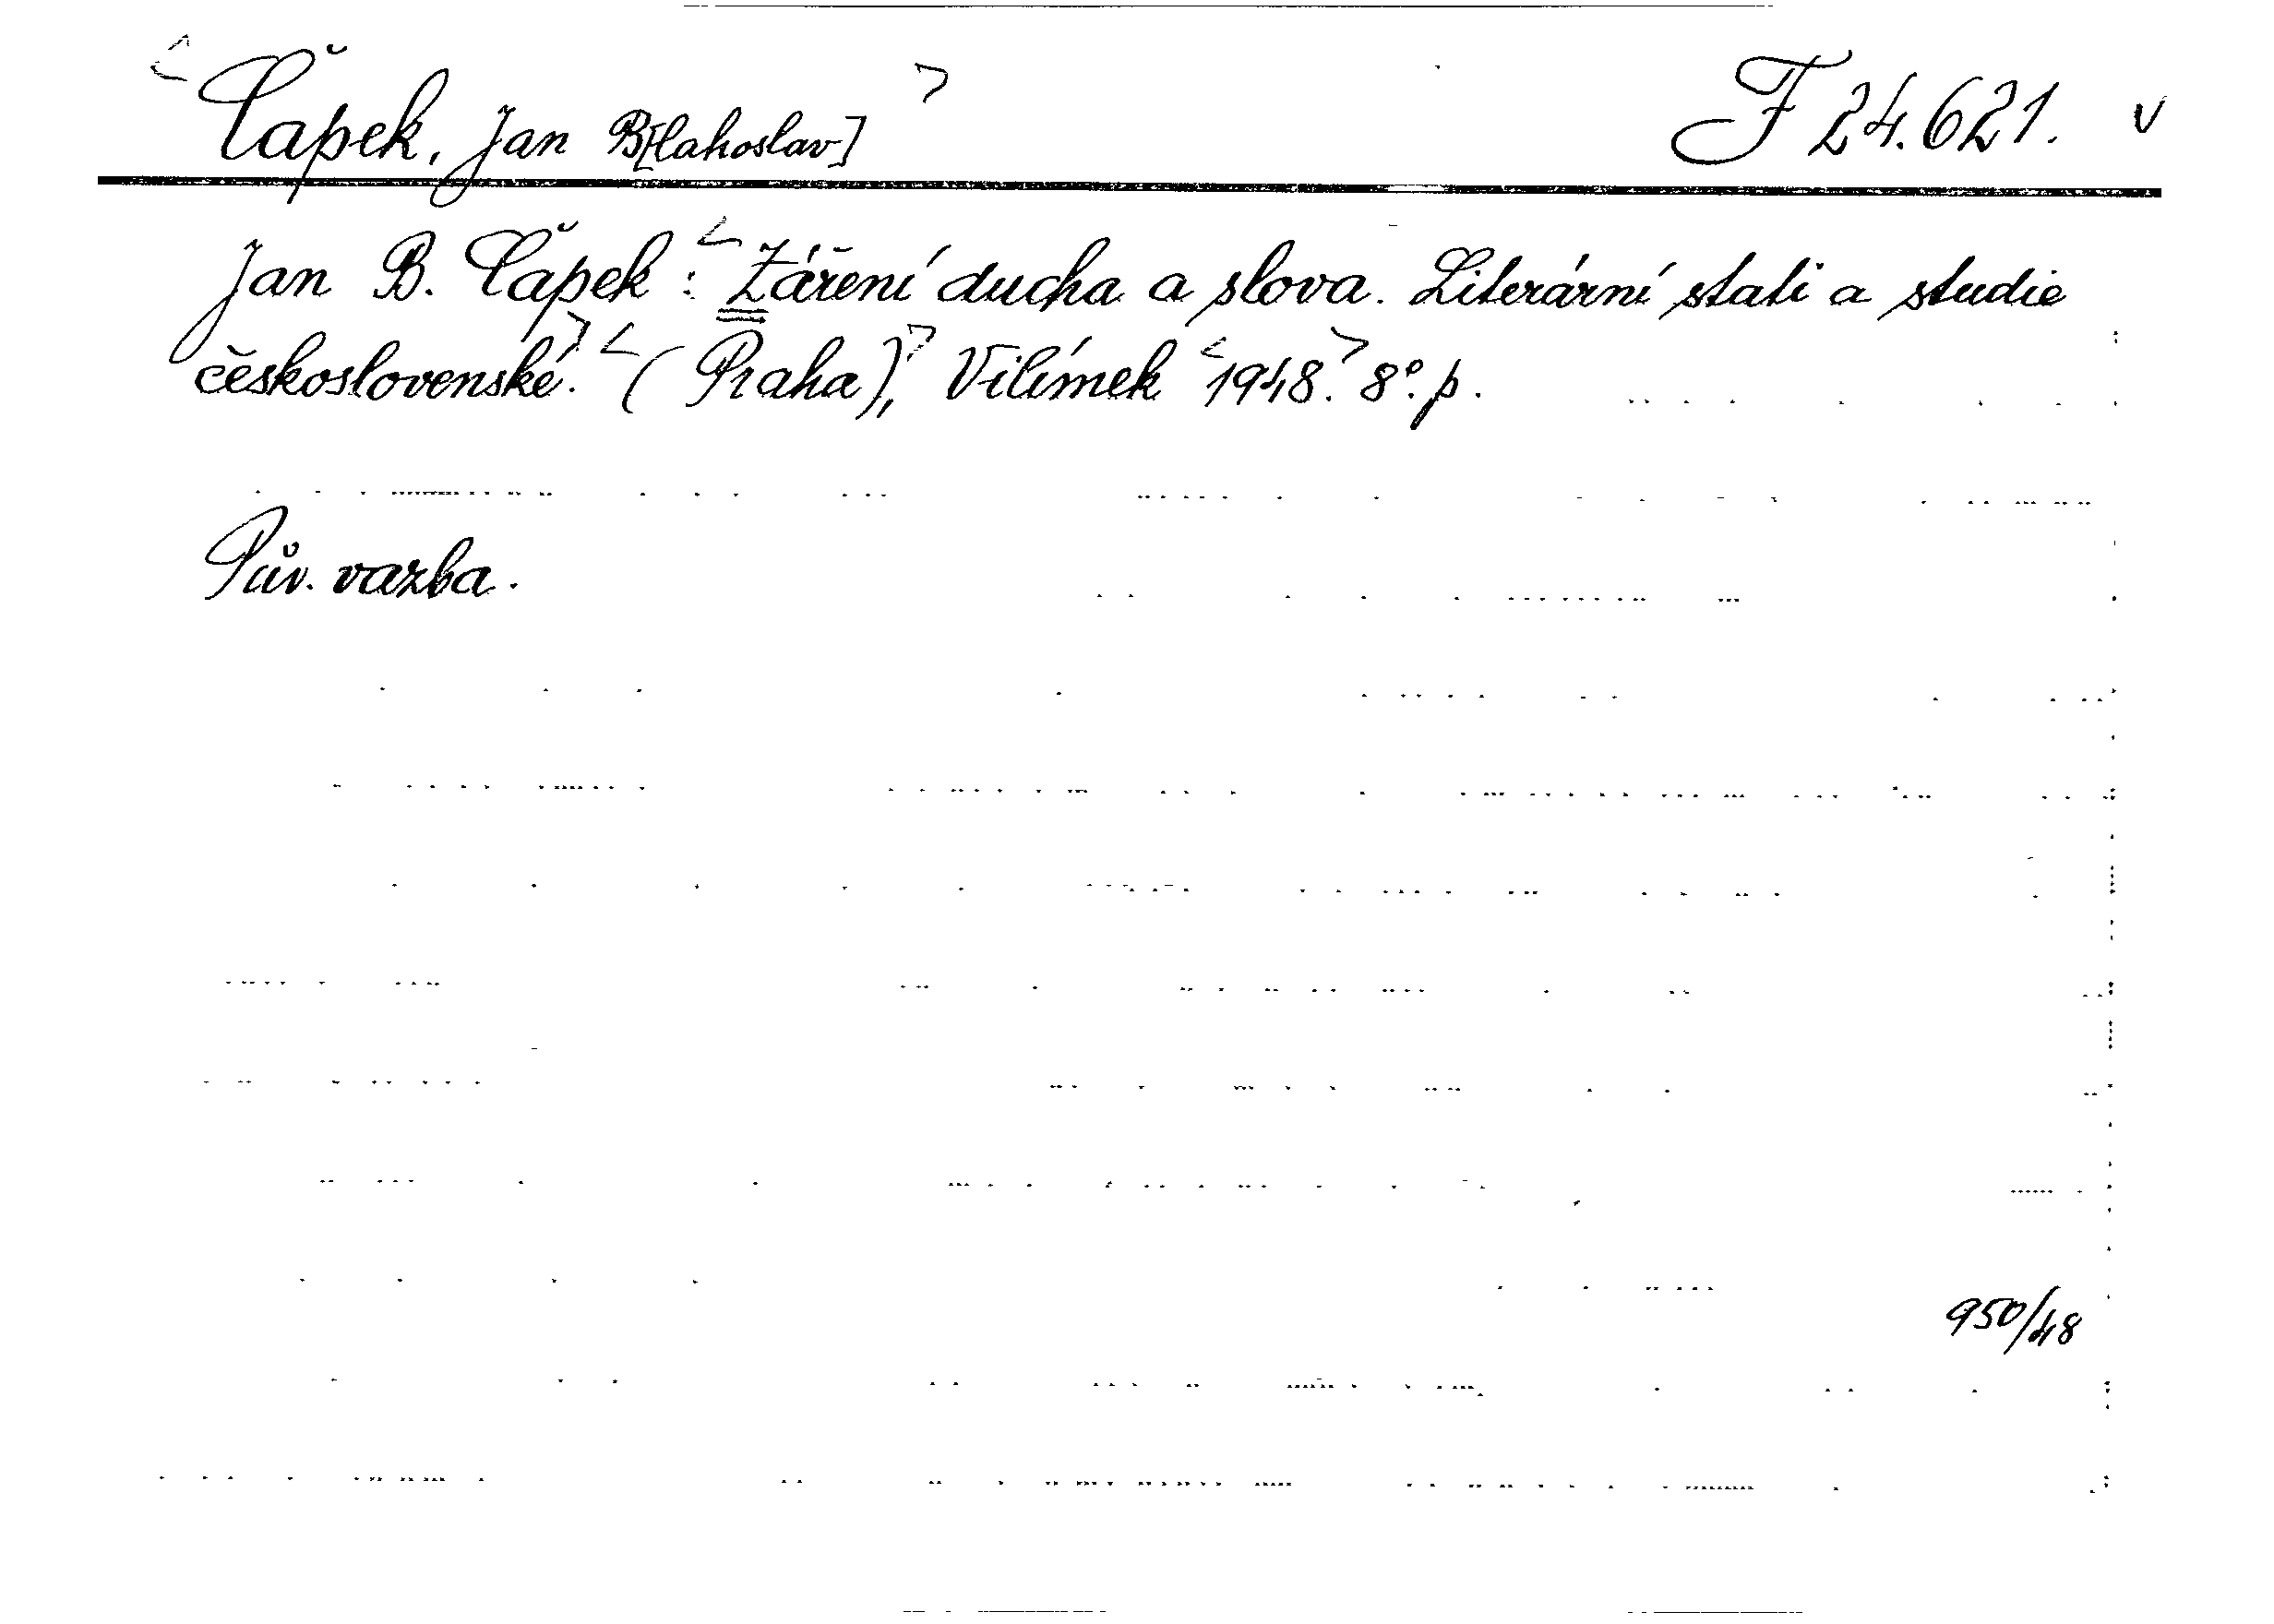 <Čapek, Jan B[lahoslav]> F 24.621. v
Jan B. Čapek: <Záření ducha a slova. Literární stati a studie
československé.> <(Praha),> Vilímek <1948.> 8°. p.
Pův. vazba.
950/48